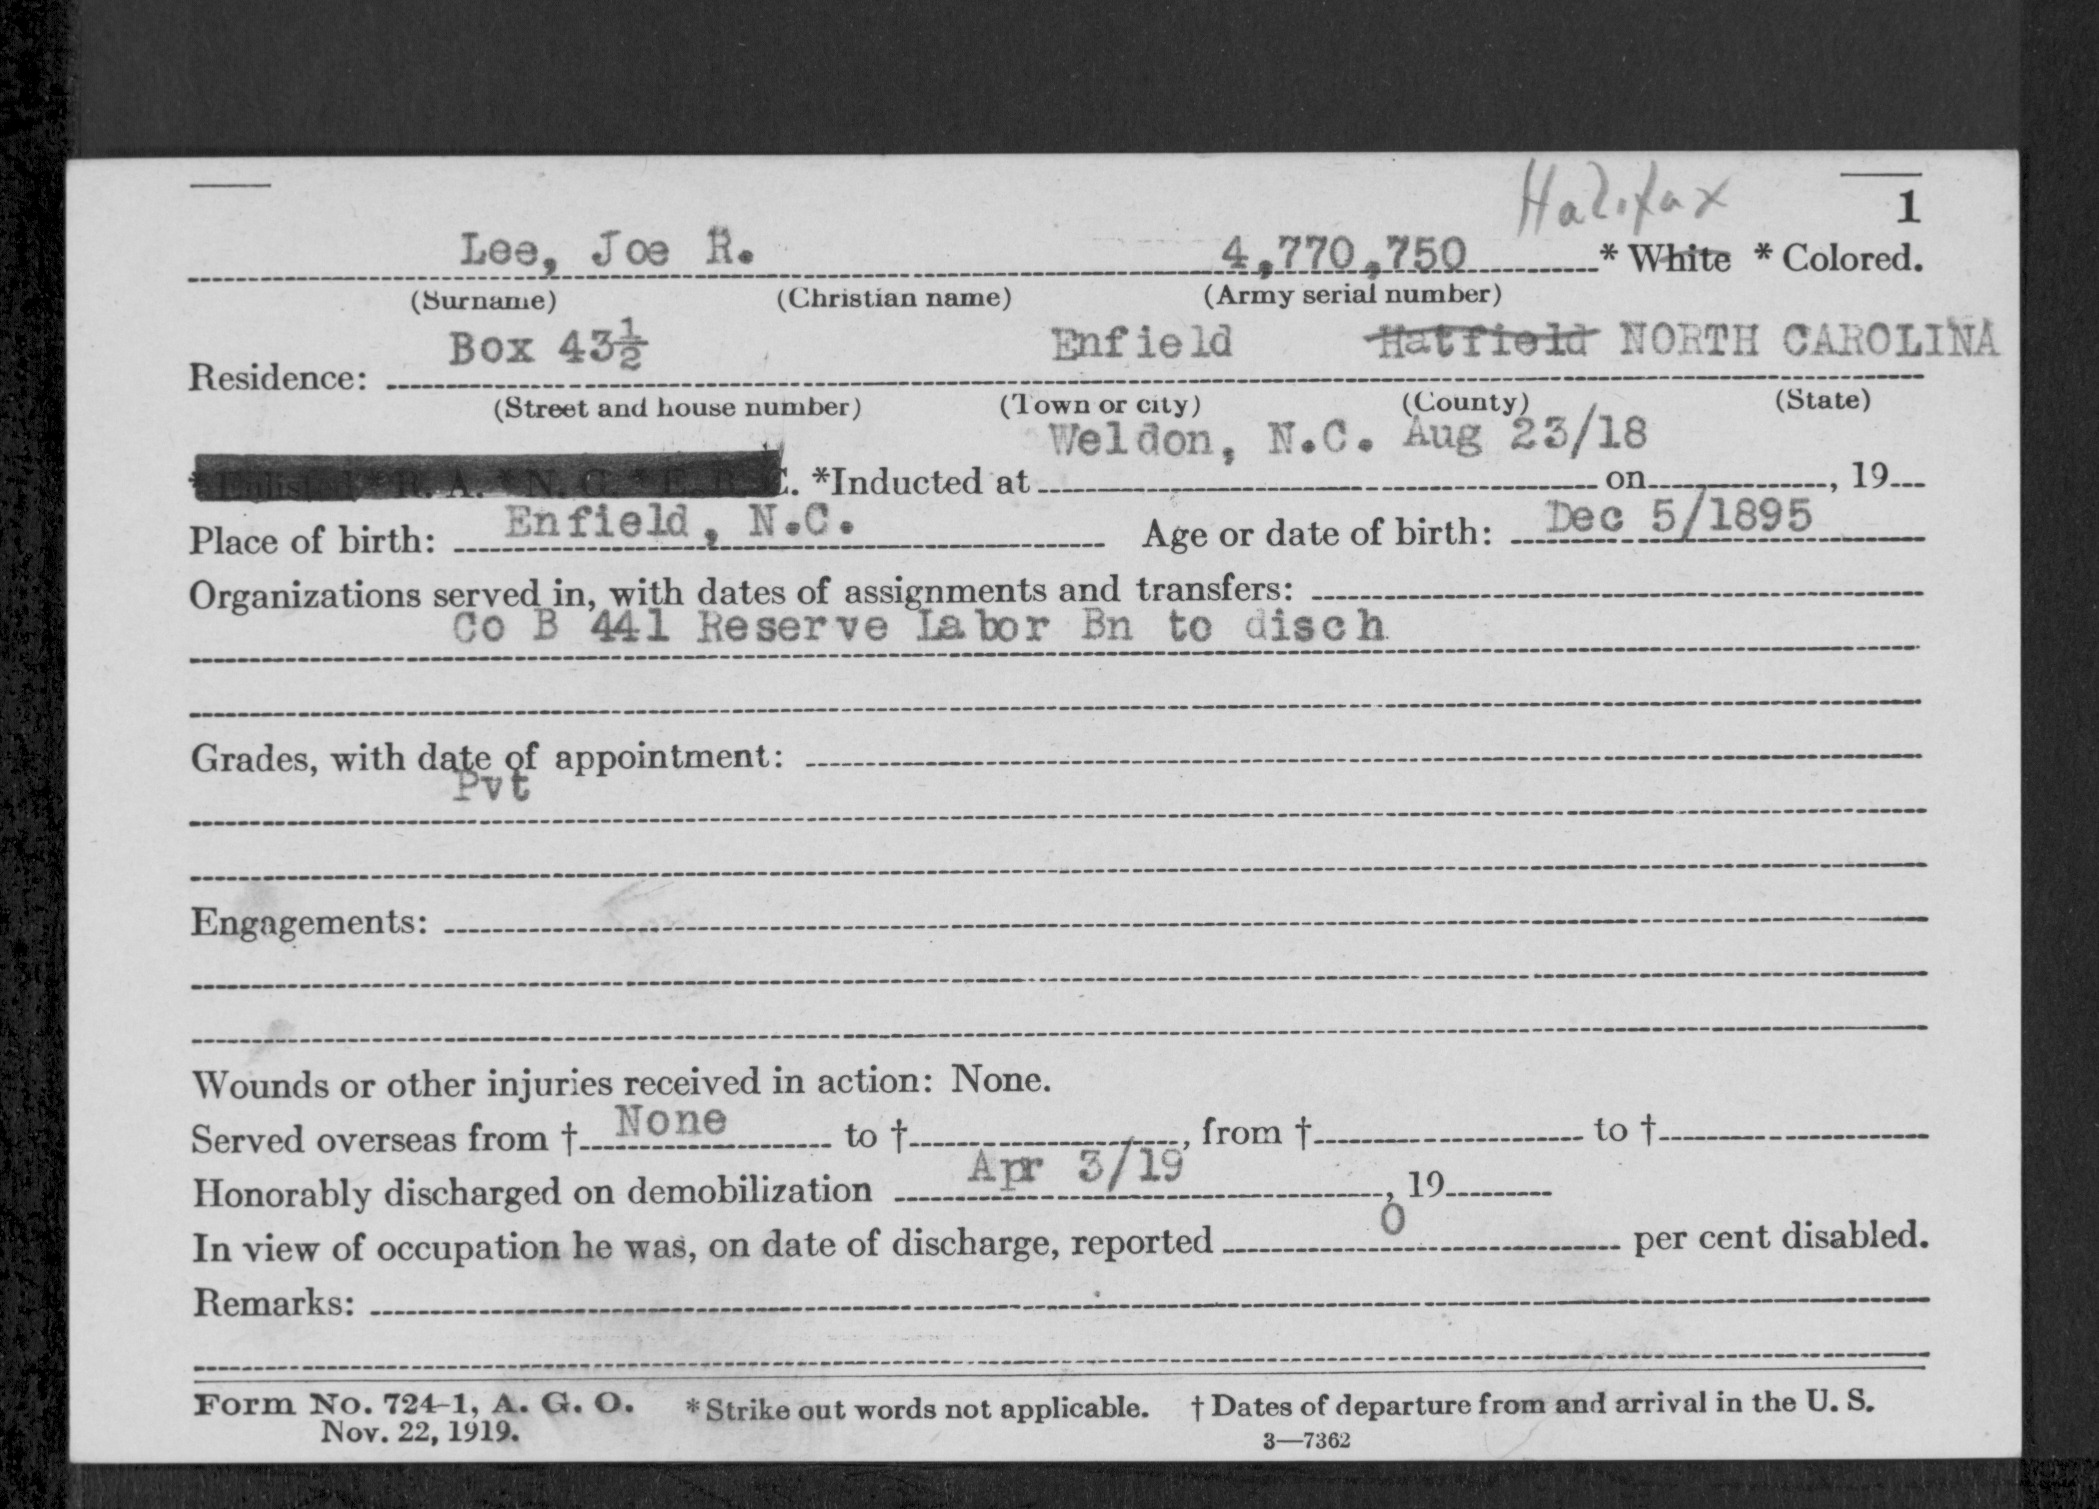 Halifax
1
Lee, Joe R. 4,770,750 * White * Colored.
(Surname) (Christian name) (Army serial number)
Box 43½ Enfield Hatfield NORTH CAROLINA
Residence:
(Street and house number) (Town or city) (County) (State)
Weldon, N.C. Aug 23/18
* Enlisted * R. A. * N. G. * E. R. C. *Inducted at on , 19
Place of birth: Enfield, N.C. Age or date of birth: Dec 5/1895
Organizations served in, with dates of assignments and transfers:
Co B 441 Reserve Labor Bn to disch
Grades, with date of appointment:
Pvt
Engagements:
Wounds or other injuries received in action: None.
Served overseas from † None to † , from † to †
Honorably discharged on demobilization Apr 3/19 , 19
In view of occupation he was, on date of discharge, reported 0 per cent disabled.
Remarks:
Form No. 724-1, A. G. O. *Strike out words not applicable. † Dates of departure from and arrival in the U. S.
Nov. 22, 1919. 3—7362